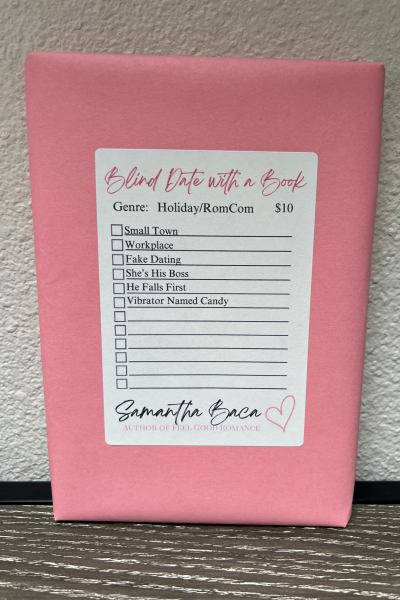 Blind Date with a Book
Genre: Holiday/RomCom $10
Small Town
Workplace
Fake Dating
She's His Boss
He Falls First
Vibrator Named Candy
Samantha Baca
AUTHOR OF FEEL GOOD ROMANCE